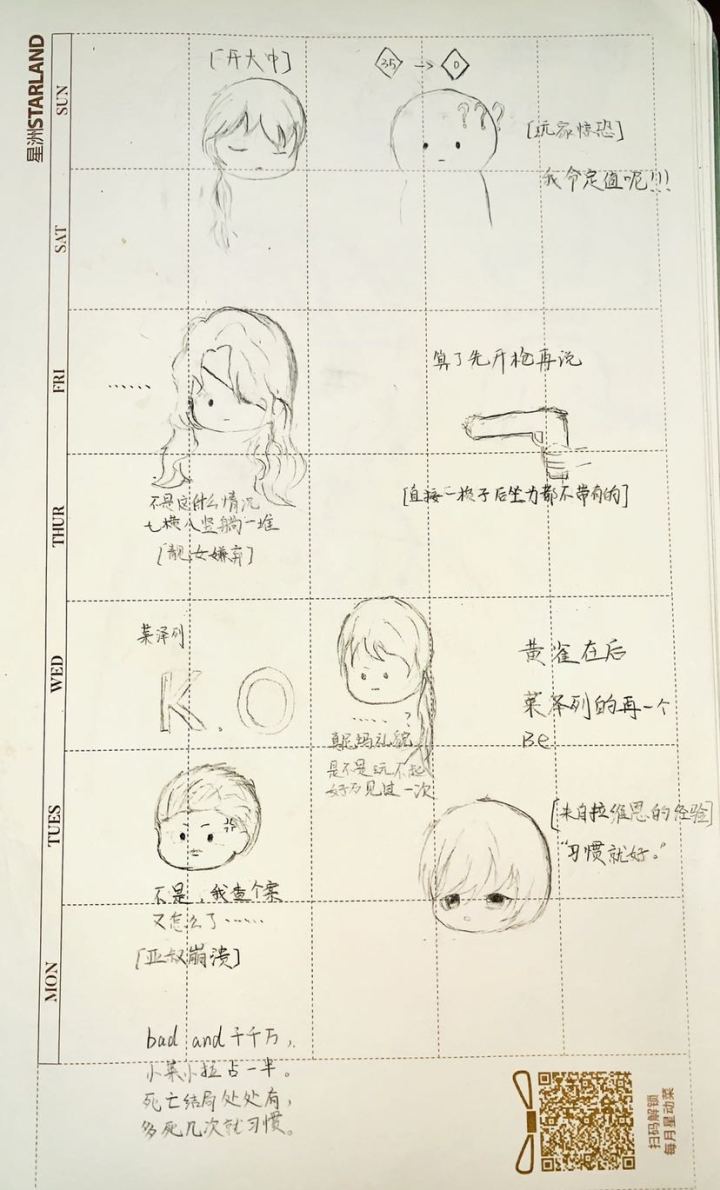 星洲STARLAND
SUN
SAT
FRI
THUR
WED
TUES
MON
[开大中]
35 → 0
???
[玩家惊恐]
我命定值呢!!!
……
不是这什么情况
七横八竖躺一堆
[靓女嫌弃]
算了先开枪再说
[直接一梭子后坐力都不带有的]
莱泽列
K.O
……?
真尼玛礼貌
是不是玩不起
好歹见过一次
黄雀在后
莱泽列的再一个
Be
不是,我查个案
又怎么了……
[亚叔崩溃]
[来自拉维恩的经验]
“习惯就好。”
bad and千千万,
小莱小拉占一半。
死亡结局处处有,
多死几次就习惯。
扫码解锁
每月星动菜